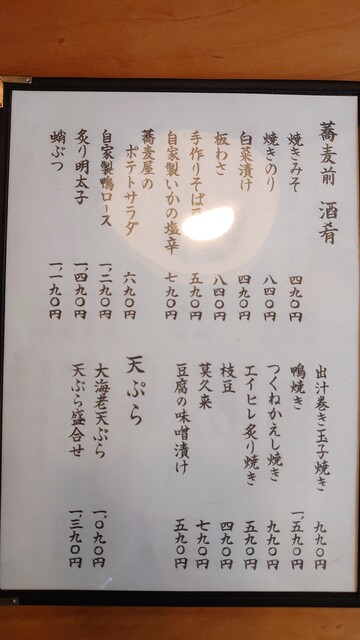 蕎麦前 酒肴
焼きみそ 四九〇円
焼きのり 八四〇円
白菜漬け 四九〇円
板わさ 八四〇円
手作りそば 五九〇円
自家製いかの塩辛 七九〇円
蕎麦屋の
ポテトサラダ 六九〇円
自家製鴨ロース 一、二九〇円
炙り明太子 一、四九〇円
蛸ぶつ 一、一九〇円
出汁巻き玉子焼き 九九〇円
鴨焼き 一、五九〇円
つくねかえし焼き 九九〇円
エイヒレ炙り焼き 五九〇円
枝豆 四九〇円
莫久来 七九〇円
豆腐の味噌漬け 五九〇円
天ぷら
大海老天ぷら 一、〇九〇円
天ぷら盛合せ 一、三九〇円